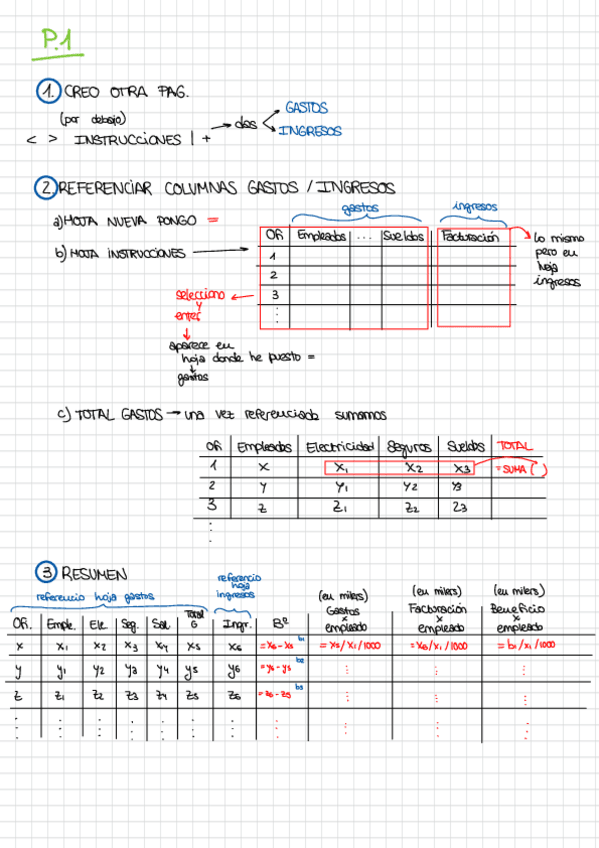 P.1
1. CREO OTRA PAG.
(por debajo)
< > INSTRUCCIONES | + → dos
GASTOS
INGRESOS
2 REFERENCIAR COLUMNAS GASTOS / INGRESOS
a) HOJA NUEVA PONGO =
b) HOJA INSTRUCCIONES →
gastos ingresos
Ofi Empleados ... Sueldos Facturación
1
2
3
:
lo mismo
pero en
hoja
ingresos
selecciono
y
enter
aparece en
hoja donde he puesto =
gastos
c) TOTAL GASTOS → una vez referenciada sumamos
Ofi Empleados Electricidad Seguros Sueldos TOTAL
1 x x1 x2 x3 = SUMA ( )
2 y y1 y2 y3
3 z z1 z2 z3
:
3 RESUMEN
referencio hoja gastos
referencio
hoja
ingresos
(en milers) (en milers) (en milers)
Ofi. Emple. Ele Seg. Sal Total G Ingr. Bº Gastos x empleado Facturación x empleado Beneficio x empleado
x x1 x2 x3 x4 x5 x6 = x6 - x5 b1 = x5/x1/1000 = x6/x1/1000 = b1/x1/1000
y y1 y2 y3 y4 y5 y6 = y6 - y5 b2 : : :
z z1 z2 z3 z4 z5 z6 = z6 - z5 b3 : : :
: : : : : : : : : : :